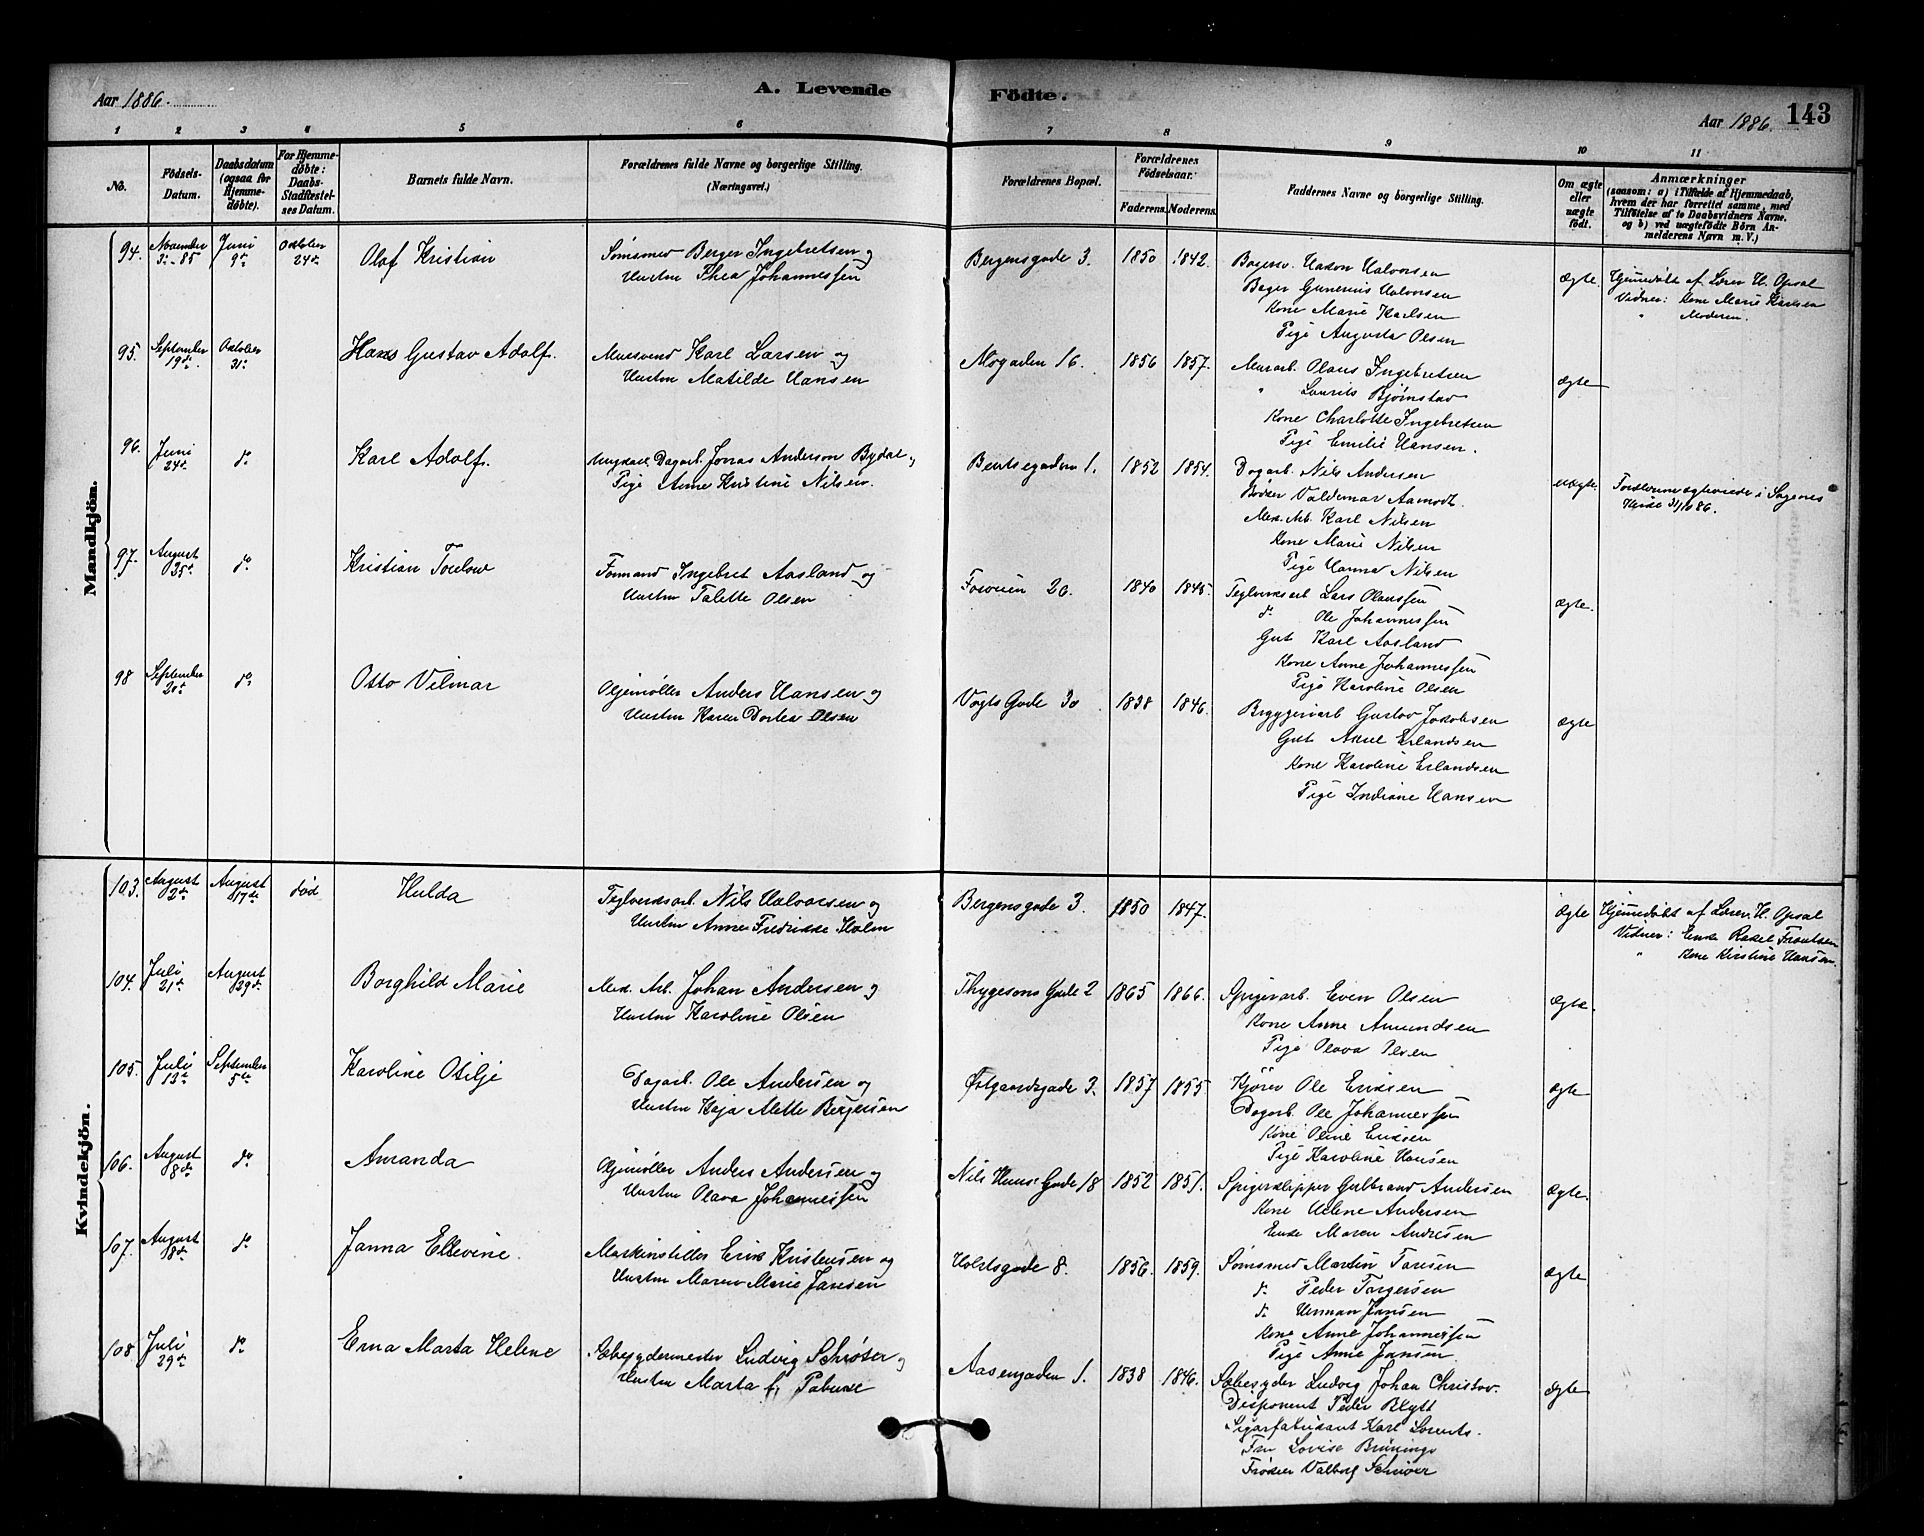 Aar 1886.
A. Levende Födte.
Aar 1886.
143
1 2 3 4 5 6 7 8 9 10 11
No.
Födsels-Datum.
Daabsdatum (ogsaa for Hjemmedöbte).
For Hjemmedöbte: Daabs-Stadfæstelses Datum.
Barnets fulde Navn.
Forældrenes fulde Navne og borgerlige Stilling. (Næringsvei.)
Forældrenes Bopæl.
Forældrenes Födselsaar.
Faderens. Moderens.
Faddernes Navne og borgerlige Stilling.
Om ægte eller uægte födt.
Anmærkninger
(saasom: a) i Tilfælde af Hjemmedaab, hvem der har forrettet samme, med Tilföielse af to Daabsvidners Navne. og b) ved uægtefödte Börn Anmelderens Navn m. V.)
Mandkjön.
94. November 3d. - 85 Juni 9d. Oktober 24d. Olaf Kristian
Sömsmed Berger Ingebretsen og
Hustru Thea Johannessen
Bergensgade 3. 1850 1842.
Bagersv. Hakon Halvorsen
Bager Gunerius Halvorsen
Kone Marie Karlsen
Pige Augusta Olsen
ægte.
Hjemmedöbt af Lærer H. Opsal
Vidner: Kone Marie Karlsen
" Moderen.
95. September 19de. Oktober 31. Hans Gustav Adolf.
Muursvend Karl Larsen og
Hustru Matilde Hansen
Mogaden 16. 1856 1857.
Murarb. Olaus Ingebretsen
" Laurits Bjørnstad
Kone Charlotte Ingebretsen
Pige Emilie Hansen.
ægte
96. Juni 24d. do Karl Adolf.
Ungkarl, Dagarb. Jonas Anderson Bydal og
Pige Anne Kristine Nilsen.
Bentsegaden 1. 1852 1854.
Dagarb. Nils Andersen
Bødker Valdemar Aamodt.
Mek. Arb. Karl Nilsen
Kone Marie Nilsen
Pige Hanna Nilsen
uægte.
Forældrene ægteviede i Sagenes
Kirke 31/10 86.
97. August 25d. do Kristian Torlow
Formand Ingebret Aasland og
Hustru Talette Olsen
Fosveien 20. 1840 1845.
Teglverksarb Lars Olaussen
do Ole Johannessen
Gut Karl Aasland
Kone Anne Johannessen
Pige Karoline Olsen
ægte.
98 September 20d do Otto Vilmar
Oljemøller Anders Hansen og
Hustru Karen Dortea Olsen
Vogts Gade 30 1838 1846.
Bryggeriarb Gustav Jakobsen
Gut Aksel Erlandsen
Kone Karoline Erlandsen
Pige Indiane Hansen
ægte
Kvindekjön.
103. August 2d. August 17de død Hulda
Teglverksarb. Nils Halvorsen og
Hustru Anne Fredrikke Holm
Bergensgade 3. 1850 1847.
ægte
Hjemmedöbt af Lærer H. Opsal
Vidner: Enke Rakel Frantsen
" Kone Kirstine Hansen.
104. Juli 21d. August 29d. Borghild Marie
Mek. Arb. Johan Andersen og
Hustru Karoline Olsen
Thygesons Gade 2 1865 1866.
Spigerarb. Even Olsen
Kone Anne Amundsen
Pige Olava Olsen
ægte.
105. Juli 13d September 5te Karoline Otilje
Dagarb. Ole Andersen og
Hustru Kaja Alette Bergersen
Østgaardsgade 3. 1857 1855.
Kjører Ole Eriksen
Dagarb. Ole Johannessen
Kone Oline Eriksen
Pige Karoline Hansen
ægte
106. August 8de do Amanda
Oljemøller Anders Andersen og
Hustru Olava Johannessen
Nils Huus' Gade 18 1852 1851.
Spigerklipper Gulbrand Andersen
Kone Helene Andersen
Enke Maren Andresen
ægte.
107. August 18d. do Janna Ellevine.
Maskinstiller Erik Kristensen og
Hustru Maren Marie Jansen
Holstsgade 8. 1856. 1859.
Sömsmed Martin Tansen
do Peder Torgersen
do Herman Jansen
Kone Anne Johannessen
Pige Anne Jansen
ægte
108. Juli 29de do Erna Marta Helene
Sæbesydermester Ludvig Schrøter og
Hustru Marta f.
Aasengaden 1. 1838 1846.
Sæbesyder Ludvig Johan Christov.
Disponent Peder Blytt
Sigarfabrikant Karl Lorents.
Fru Lovise Brünings
Frøken Valborg
ægte